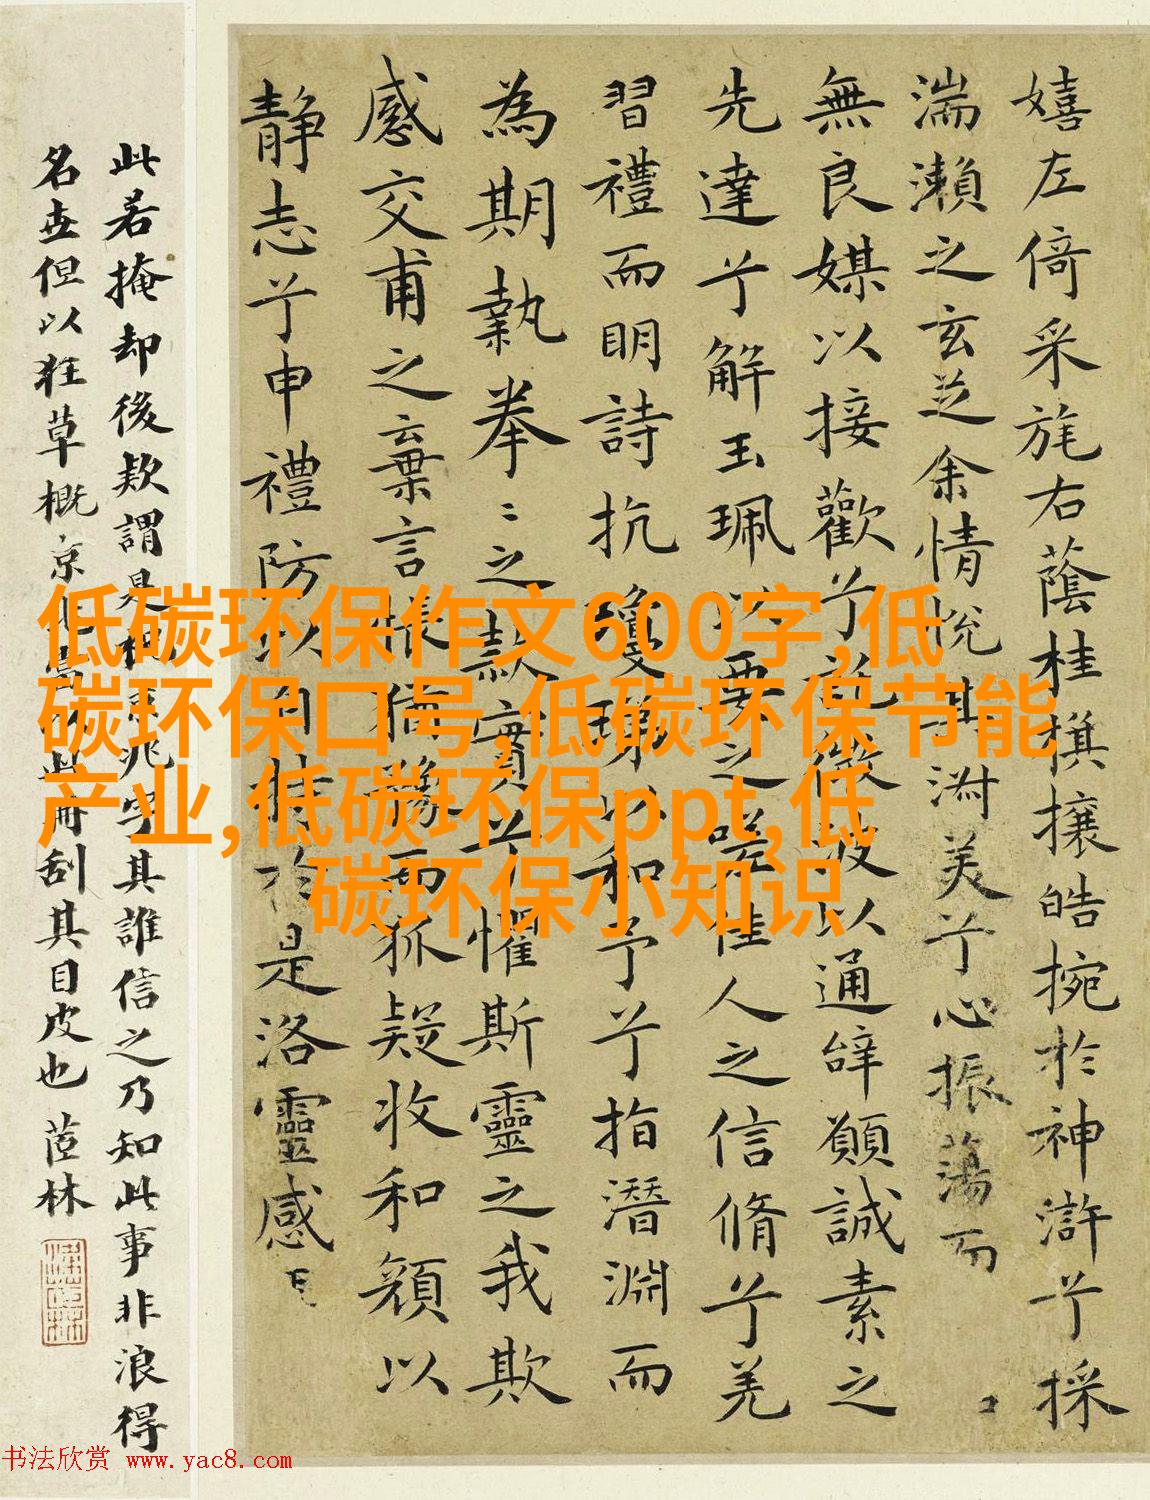 嬉左倚采旄右蔭桂旗攘皓捥於神滸兮採
湍瀨之玄芝余情悅其淑美兮心振蕩而
無良媒以接歡兮託微波以通辭願誠素之
先達兮解玉珮以要之嗟佳人之信脩兮羌
習禮而明詩抗瓊珶以和予兮指潛淵而
為期執拳〻之款實兮懼斯靈之我欺
感交甫之棄言悵猶豫而狐疑收和顏以
静志兮申禮防以自持於是洛靈感
此若掩却後款謂是柳京兆字其誰信之乃知此事非浪得
名世但以狂草概京兆當以此冊刮其目皮也 茝林
低碳环保作文600字,低
碳环保口号,低碳环保节能
产业,低碳环保ppt,低
碳环保小知识
书法欣赏 www.yac8.com